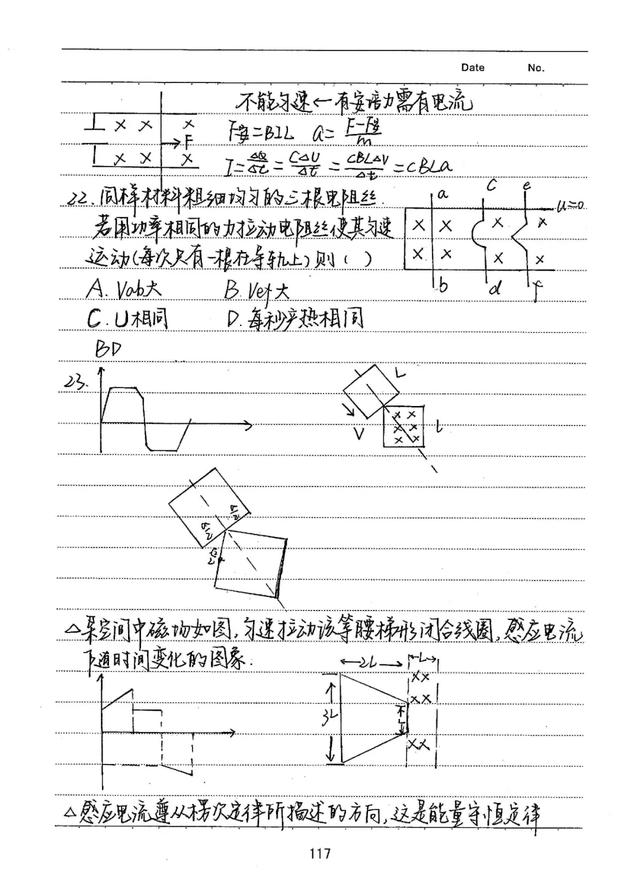 Date No.
不能匀速←有安培力需有电流
× × × F
× × ×
F安=BIL a=F-F安/m
I=ΔQ/Δt=CΔU/Δt=CBLΔV/Δt=CBLa
22. 同样材料粗细均匀的三根电阻丝.
若用功率相同的力拉动电阻丝使其匀速
运动(每次只有一根在导轨上)则( )
a c e
u=0
× × × ×
× × × ×
b d f
A. Vab大 B. Vef大
C. U相同 D. 每秒产热相同
BD
23.
L
V
× ×
× ×
× ×
L
△某空间中磁场如图,匀速拉动该等腰梯形闭合线圈,感应电流
下随时间变化的图象.
2L L
3L L
××
××
××
△感应电流遵从楞次定律所描述的方向,这是能量守恒定律
117